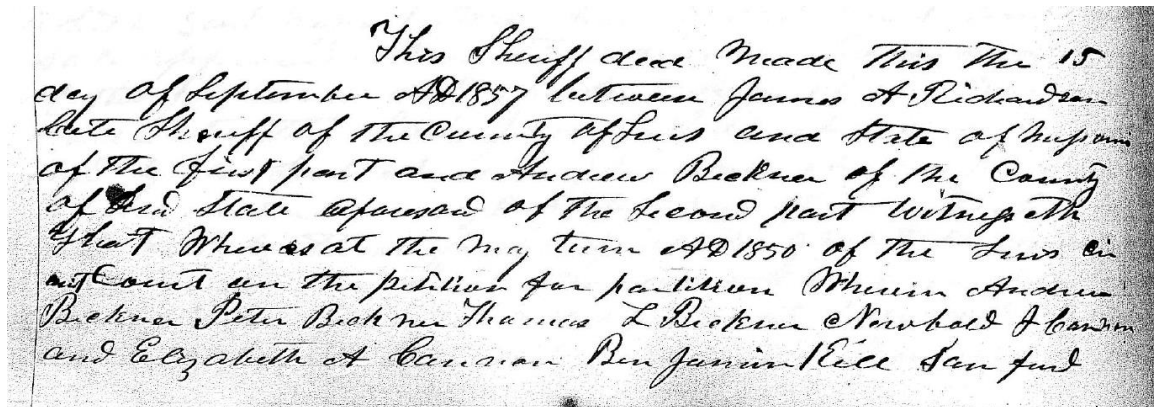 This Sheriff deed Made this the 15
day of September AD 1857 between James A Richardson
late Sheriff of the County of Lewis and State of Missouri
of the first part and Andrew Beckner of the County
of and State aforesaid of the Second part Witnesseth
That Whereas at the May term AD 1850 of the Lewis cir
cuit Court on the petition for partition Wherein Andrew
Beckner Peter Beckner Thomas L Beckner Newbold J Cannon
and Elizabeth A Cannon Benjamin Kill Sanford